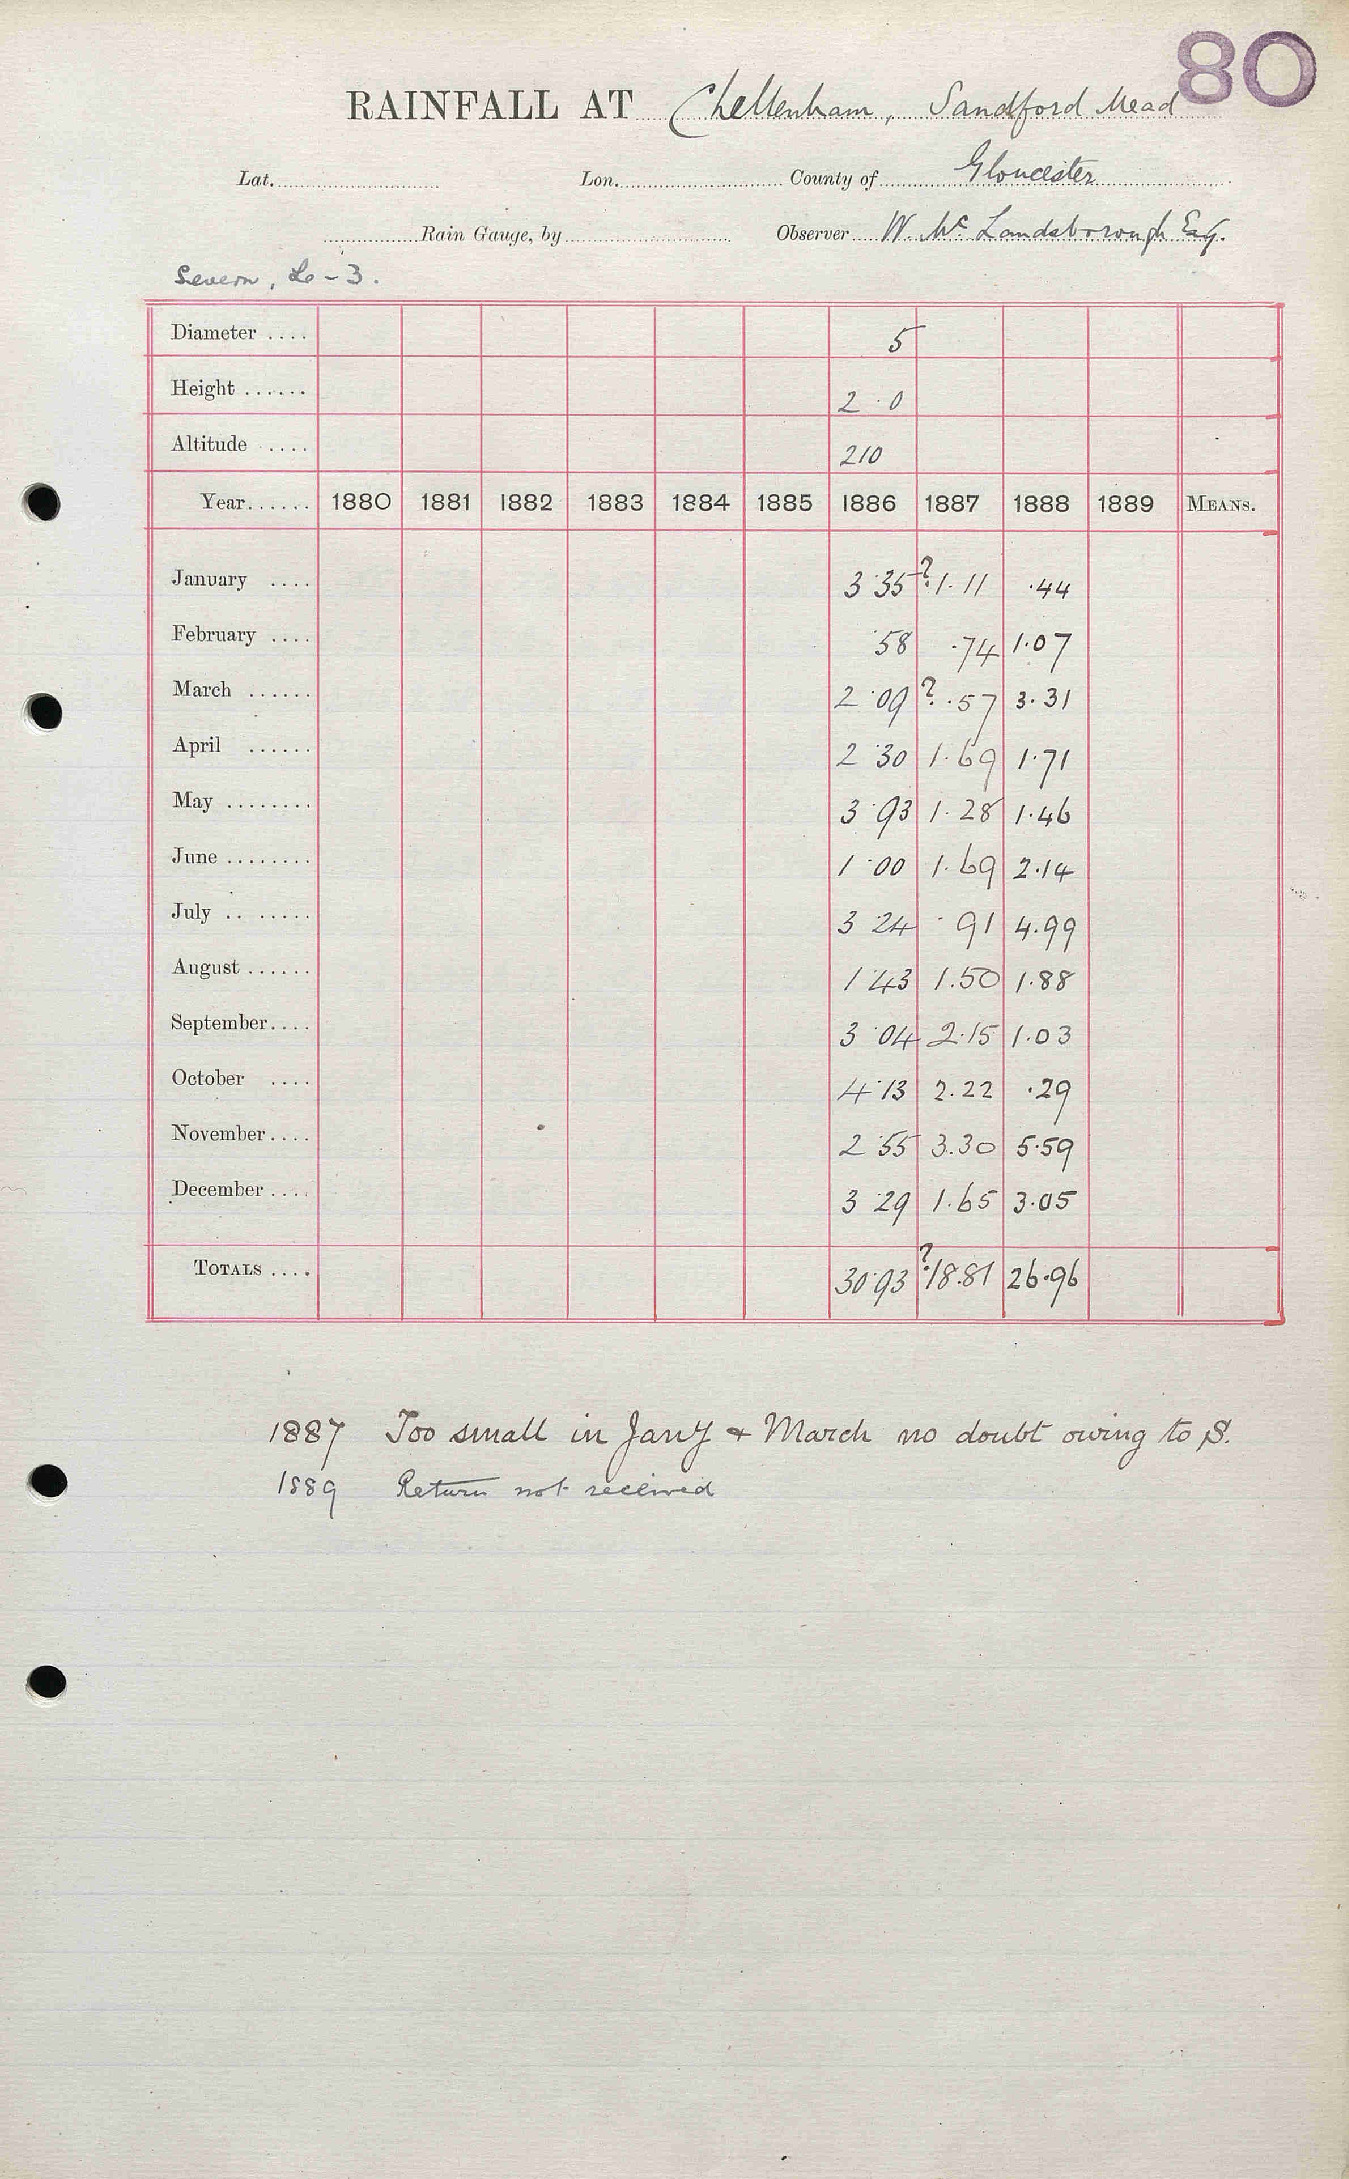 80
RAINFALL AT Cheltenham, Sandford Mead
Lat. Lon. County of Gloucester
Rain Gauge, by Observer W. Mc Landsborough Esq.
Severn, Le - 3.
Diameter .... 5
Height ...... 2 · 0
Altitude .... 210
Year...... 1880 1881 1882 1883 1884 1885 1886 1887 1888 1889 MEANS.
January .... 3·35 ? 1·11 ·44
February .... ·58 ·74 1·07
March ...... 2·09 ? ·57 3·31
April ...... 2·30 1·69 1·71
May ........ 3·93 1·28 1·46
June ........ 1·00 1·69 2·14
July .. ..... 3·24 ·91 4·99
August ...... 1·43 1.50 1·88
September.... 3·04 2·15 1·03
October .... 4·13 2.22 ·29
November.... 2·55 3.30 5·59
December .... 3·29 1·65 3·05
TOTALS .... 30·93 ? 18.81 26·96
1887 Too small in Jany & March no doubt owing to S.
1889 Return not received